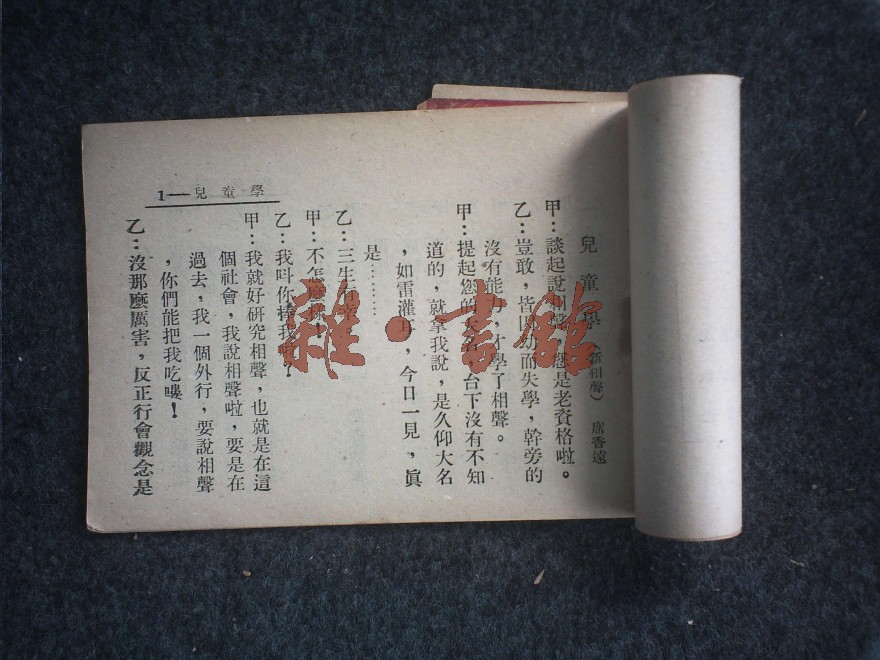 兒童學（新相聲） 席香遠
甲：談起說相聲，您是老資格啦。
乙：豈敢，皆因幼而失學，幹旁的
沒有能力，才學了相聲。
甲：提起您的大名，台下沒有不知
道的，就拿我說，是久仰大名
，如雷灌耳，今日一見，眞
是………
乙：三生有幸
甲：不怎麼樣！
乙：我叫你捧我啦？
甲：我就好硏究相聲，也就是在這
個社會，我說相聲啦，要是在
過去，我一個外行，要說相聲
，你們能把我吃嘍！
乙：沒那麼厲害，反正行會觀念是
1—兒童學
雜·書館